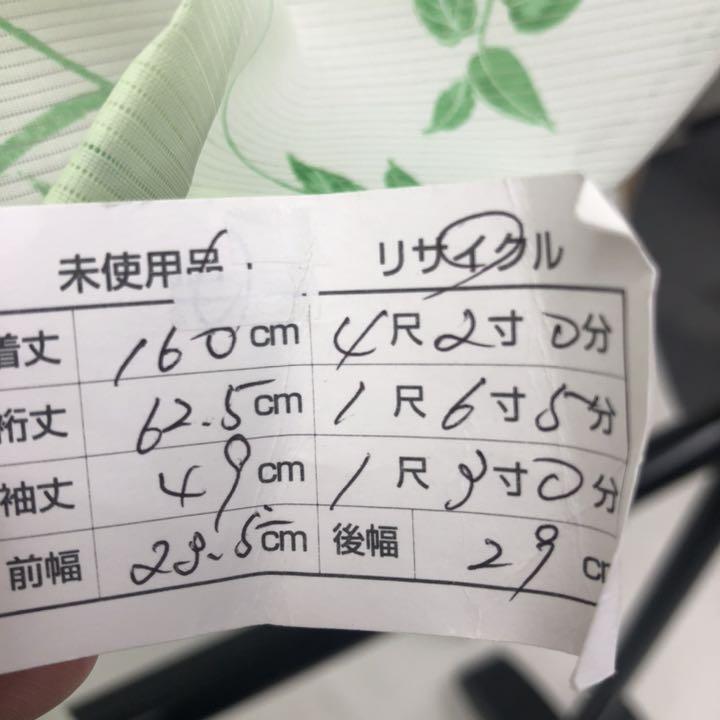 未使用品・ リサイクル
着丈 160cm 4尺2寸0分
裄丈 62.5cm 1尺6寸5分
袖丈 49cm 1尺3寸0分
前幅 23.5cm 後幅 29cm